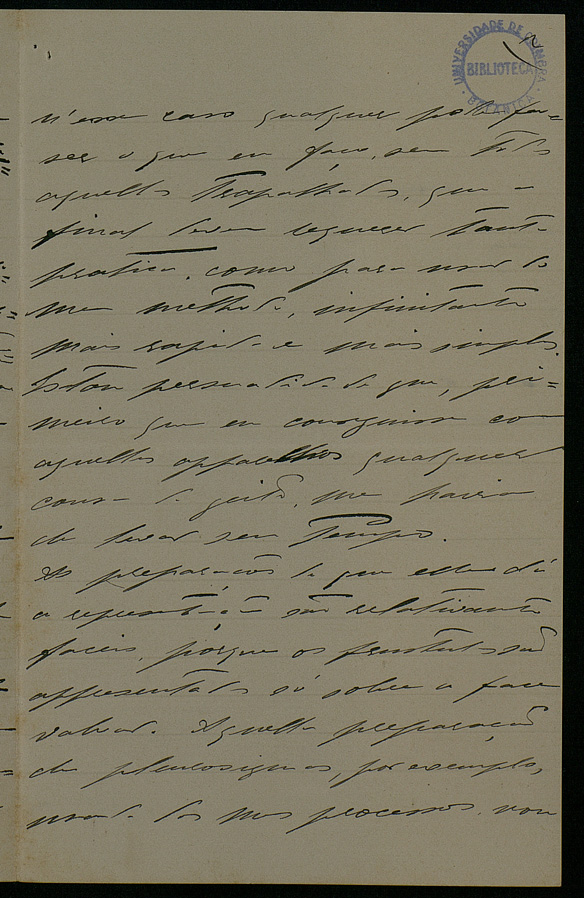 UNIVERSIDADE DE COIMBRA · BOTANICA ·
BIBLIOTECA
n'esse caso qualquer pode fa=
zer o que eu faço, sem todos
aquelles trapalhadas, que a
final devem requerer tanta
pratica, como para usar do
meu methodo, infinitamente
mais rapido e mais simples.
Estou persuadido de que, pri=
meiro que eu conseguisse com
aquelles apparelhos qualquer
cousa de geito, me havia
de levar seu tempo.
As preparações de que elle dá
a representação são relativamente
faceis, porque os frustulos são
appresentados só sobre a face
valvar. Aquella preparação
de pleurosigmas, por exemplo,
usando dos meus processos, vou